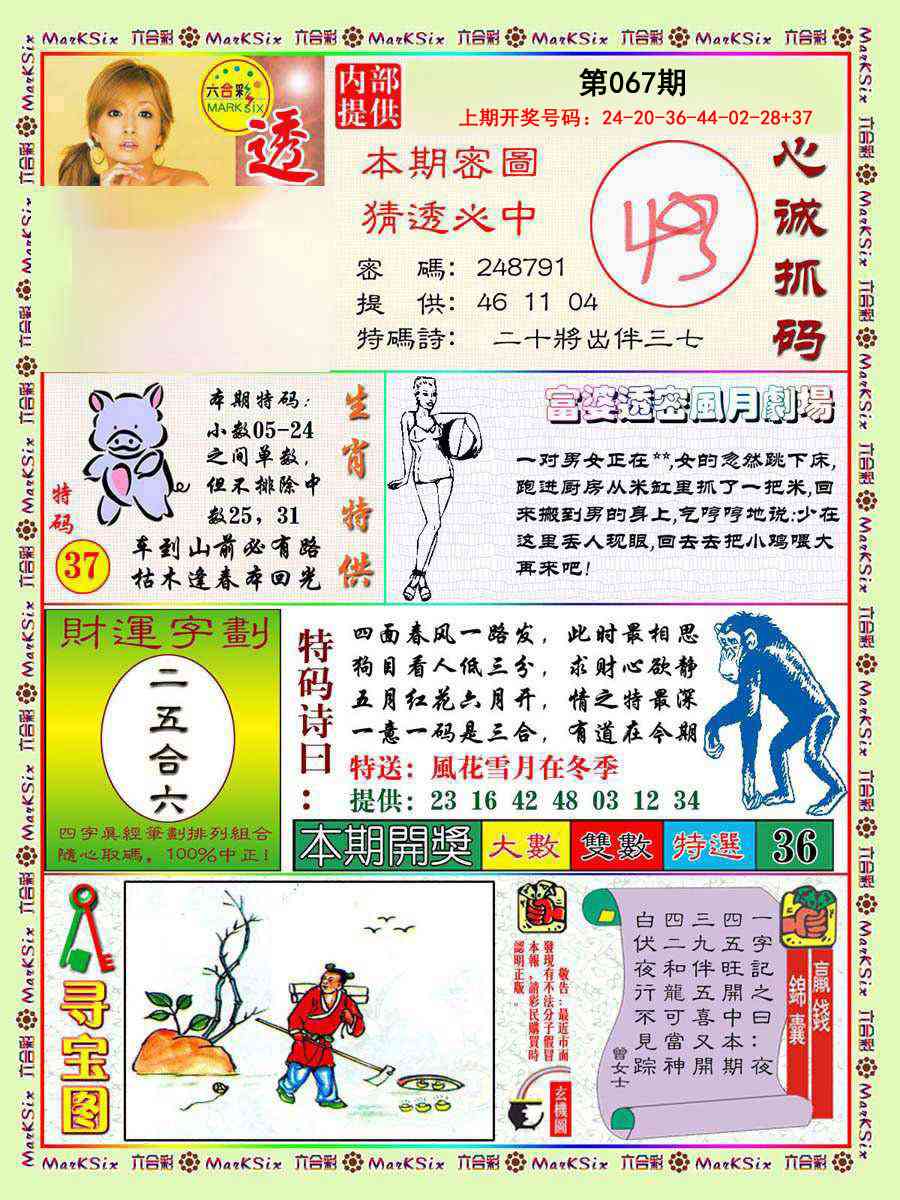 MarKSix 六合彩 MarKSix 六合彩 MarKSix 六合彩 MarKSix 六合彩 MarKSix 六合彩
六合彩
MARK SIX
透
内部
提供
第067期
上期开奖号码：24-20-36-44-02-28+37
本期密圖
猜透必中
密 碼：248791
提 供：46 11 04
特碼詩： 二十將出伴三七
心诚抓码
本期特码：
小数05-24
之间单数，
但不排除中
数25，31
车到山前必有路
枯木逢春本回光
生肖特供
特码
37
富婆透密風月劇場
一对男女正在**,女的忽然跳下床,
跑进厨房从米缸里抓了一把米,回
来搬到男的身上,气哼哼地说:少在
这里丢人现眼,回去去把小鸡喂大
再来吧!
財運字劃
二五合六
四字真經筆劃排列組合
隨心取碼，100%中正!
特码诗曰：
四面春风一路发，此时最相思
狗目看人低三分，求财心欲静
五月红花六月开，情之特最深
一意一码是三合，有道在今期
特送：風花雪月在冬季
提供：23 16 42 48 03 12 34
本期開獎 大數 雙數 特選 36
寻宝图
敬告:最近市面
發現有不法分子假冒
本報,請彩民購買時
認明正版。
玄機圖
一字記之曰：夜
四五旺開中本期
三九伴五喜又開
四二和龍可當神
白伏夜行不見踪
曾女士
贏錢
錦囊
MarKSix 六合彩 MarKSix 六合彩 MarKSix 六合彩 MarKSix 六合彩 MarKSix 六合彩